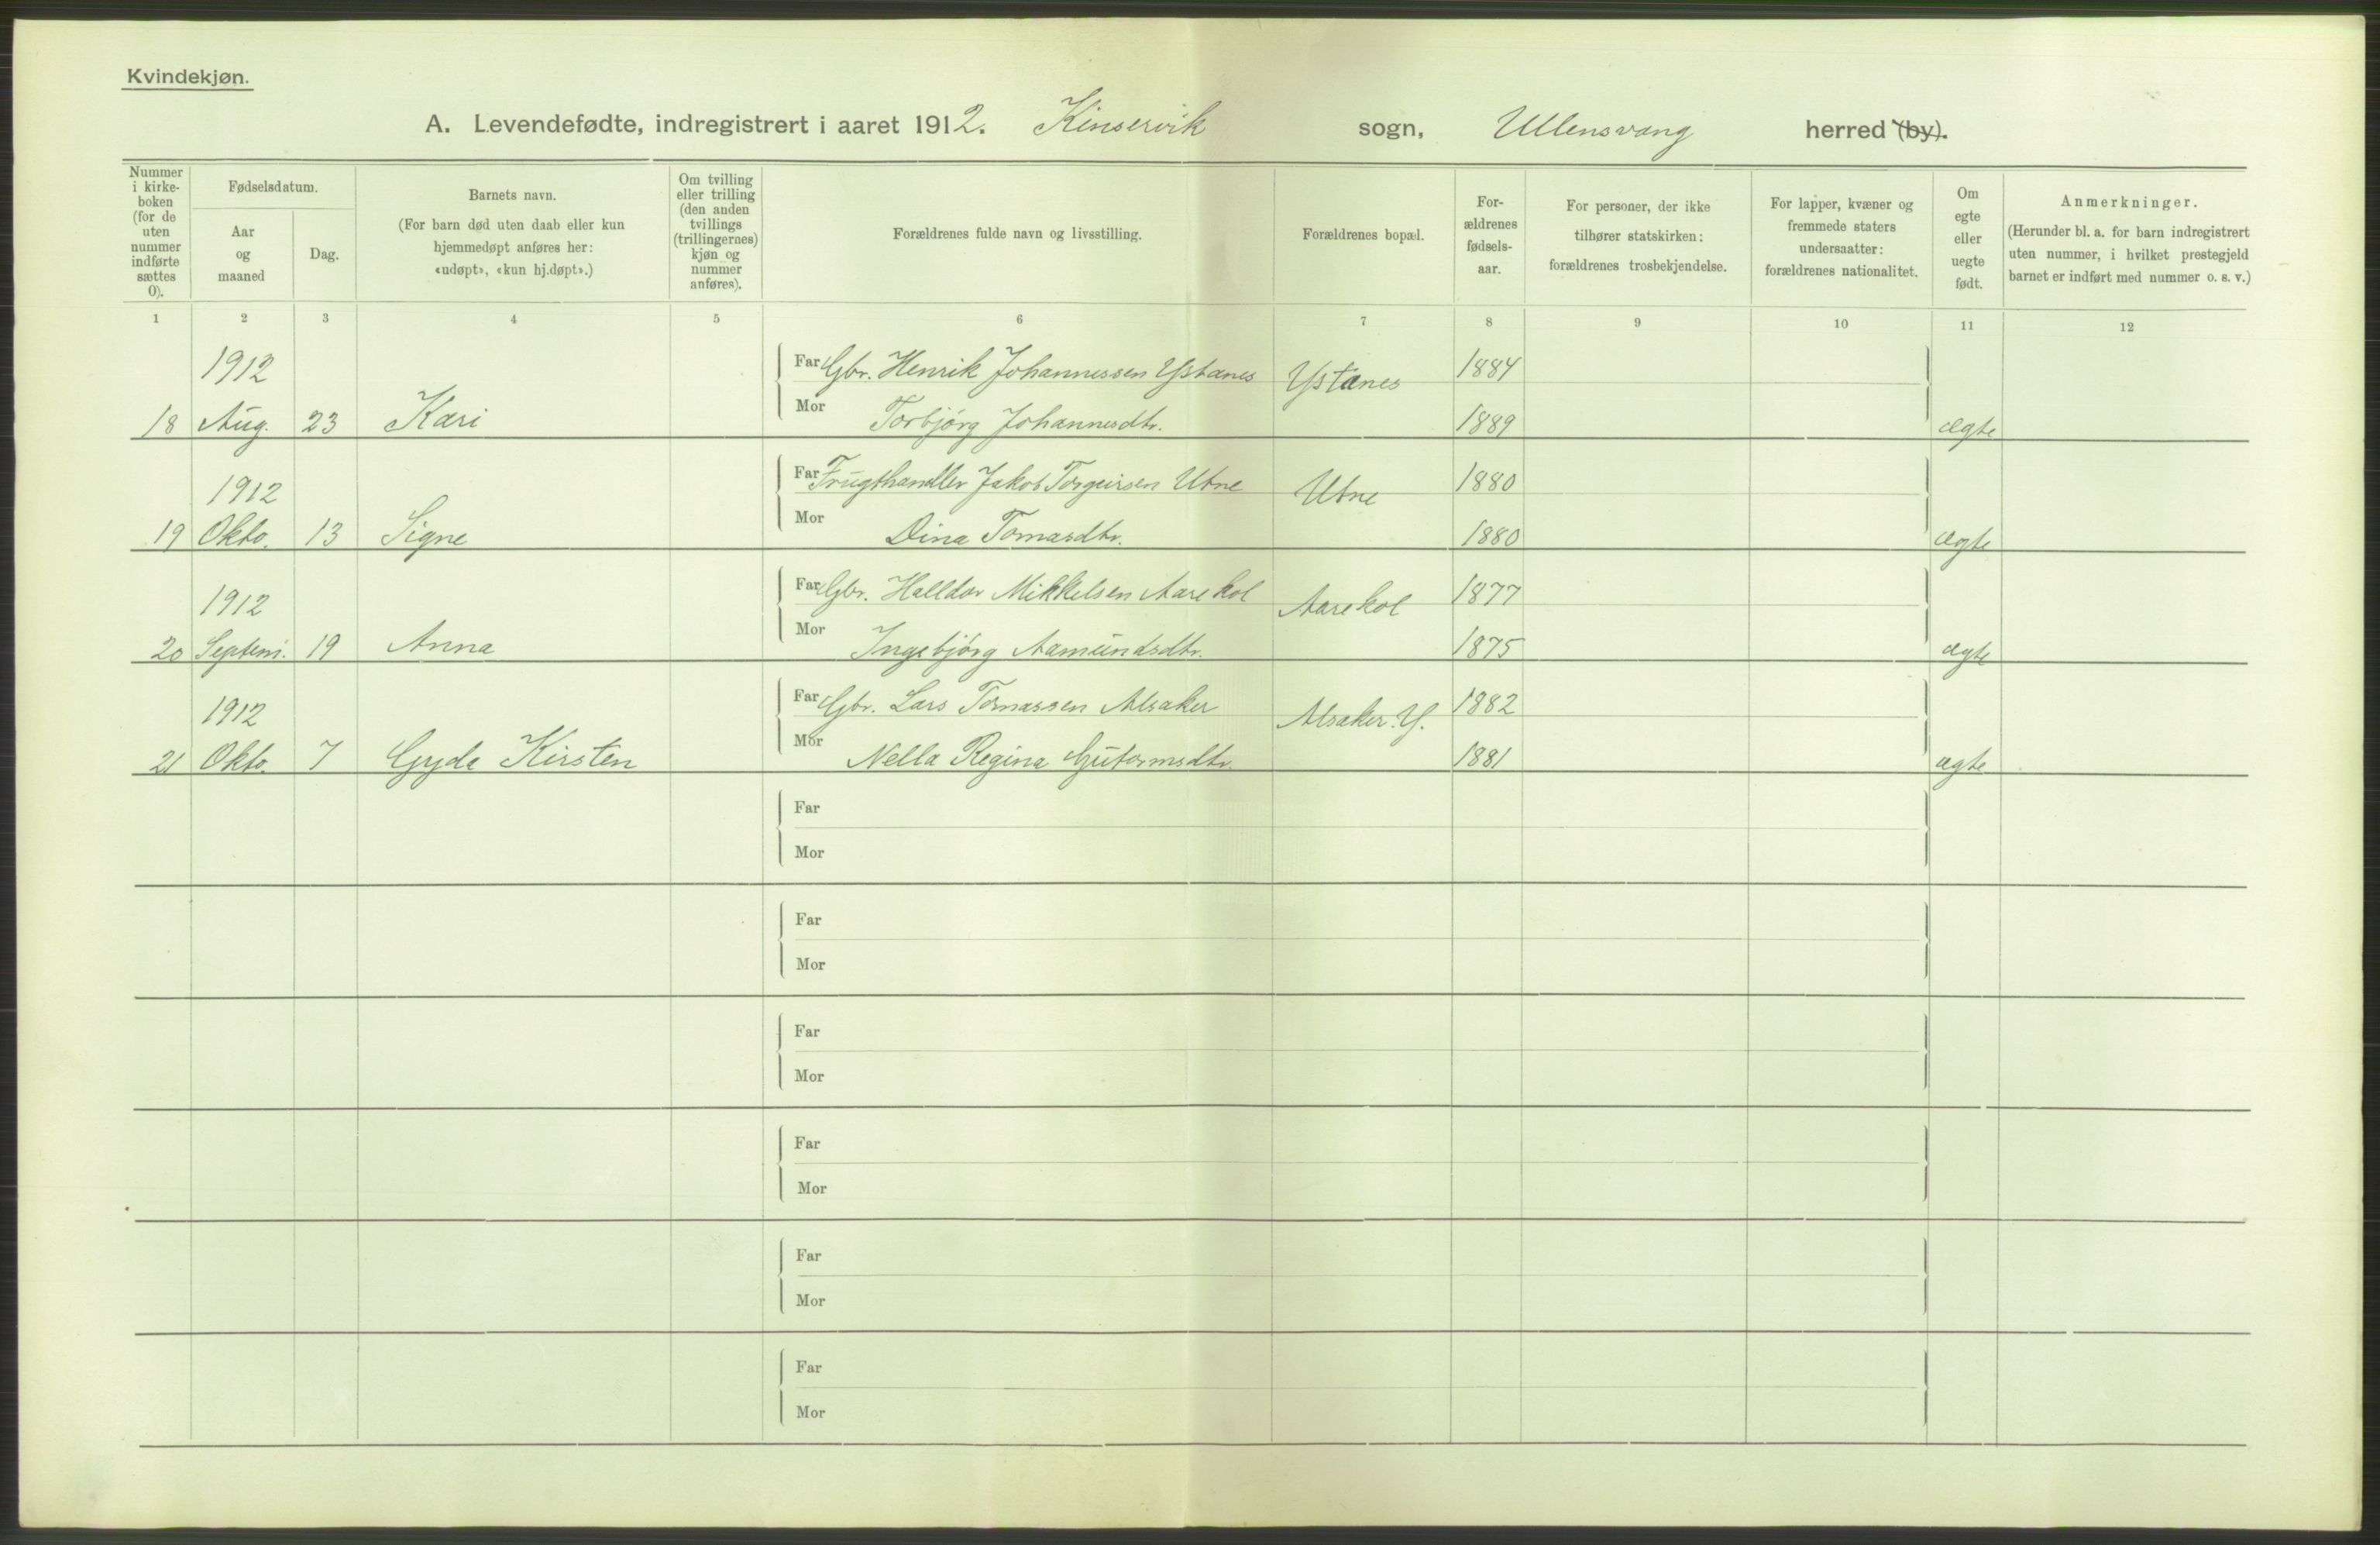 Kvindekjøn.
A. Levendefødte, indregistrert i aaret 1912. Kinservik sogn, Ullensvang herred (by).
Nummer i kirke-boken (for de uten nummer indførte sættes 0).
Fødselsdatum.
Aar og maaned
Dag.
Barnets navn.
(For barn død uten daab eller kun hjemmedøpt anføres her: «udøpt», «kun hj.døpt».)
Om tvilling eller trilling (den anden tvillings (trillingernes) kjøn og nummer anføres).
Forældrenes fulde navn og livsstilling.
Forældrenes bopæl.
For-ældrenes fødsels-aar.
For personer, der ikke tilhører statskirken: forældrenes trosbekjendelse.
For lapper, kvæner og fremmede staters undersaatter: forældrenes nationalitet.
Om egte eller uegte født.
Anmerkninger.
(Herunder bl. a. for barn indregistrert uten nummer, i hvilket prestegjeld barnet er indført med nummer o. s. v.)
1 2 3 4 5 6 7 8 9 10 11 12
1912 Far Gbr. Henrik Johannessen Ystanes Ystanes 1884
18 Aug. 23 Kari Mor Torbjørg Johannesdtr. 1889 ægte
1912 Far Frugthandler Jakob Torgeirsen Utne Utne 1880
19 Okto. 13 Signe Mor Dina Tomasdtr. 1880 ægte
1912 Far Gbr. Halldor Mikkelsen Aarekol Aarekol 1877
20 Septem. 19 Anna Mor Ingebjørg Aamundsdtr. 1875 ægte
1912 Far Gbr. Lars Tomassen Alsaker Alsaker Y. 1882
21 Okto. 7 Gyda Kirsten Mor Nella Regina Gutormsdtr. 1881 ægte
Far
Mor
Far
Mor
Far
Mor
Far
Mor
Far
Mor
Far
Mor